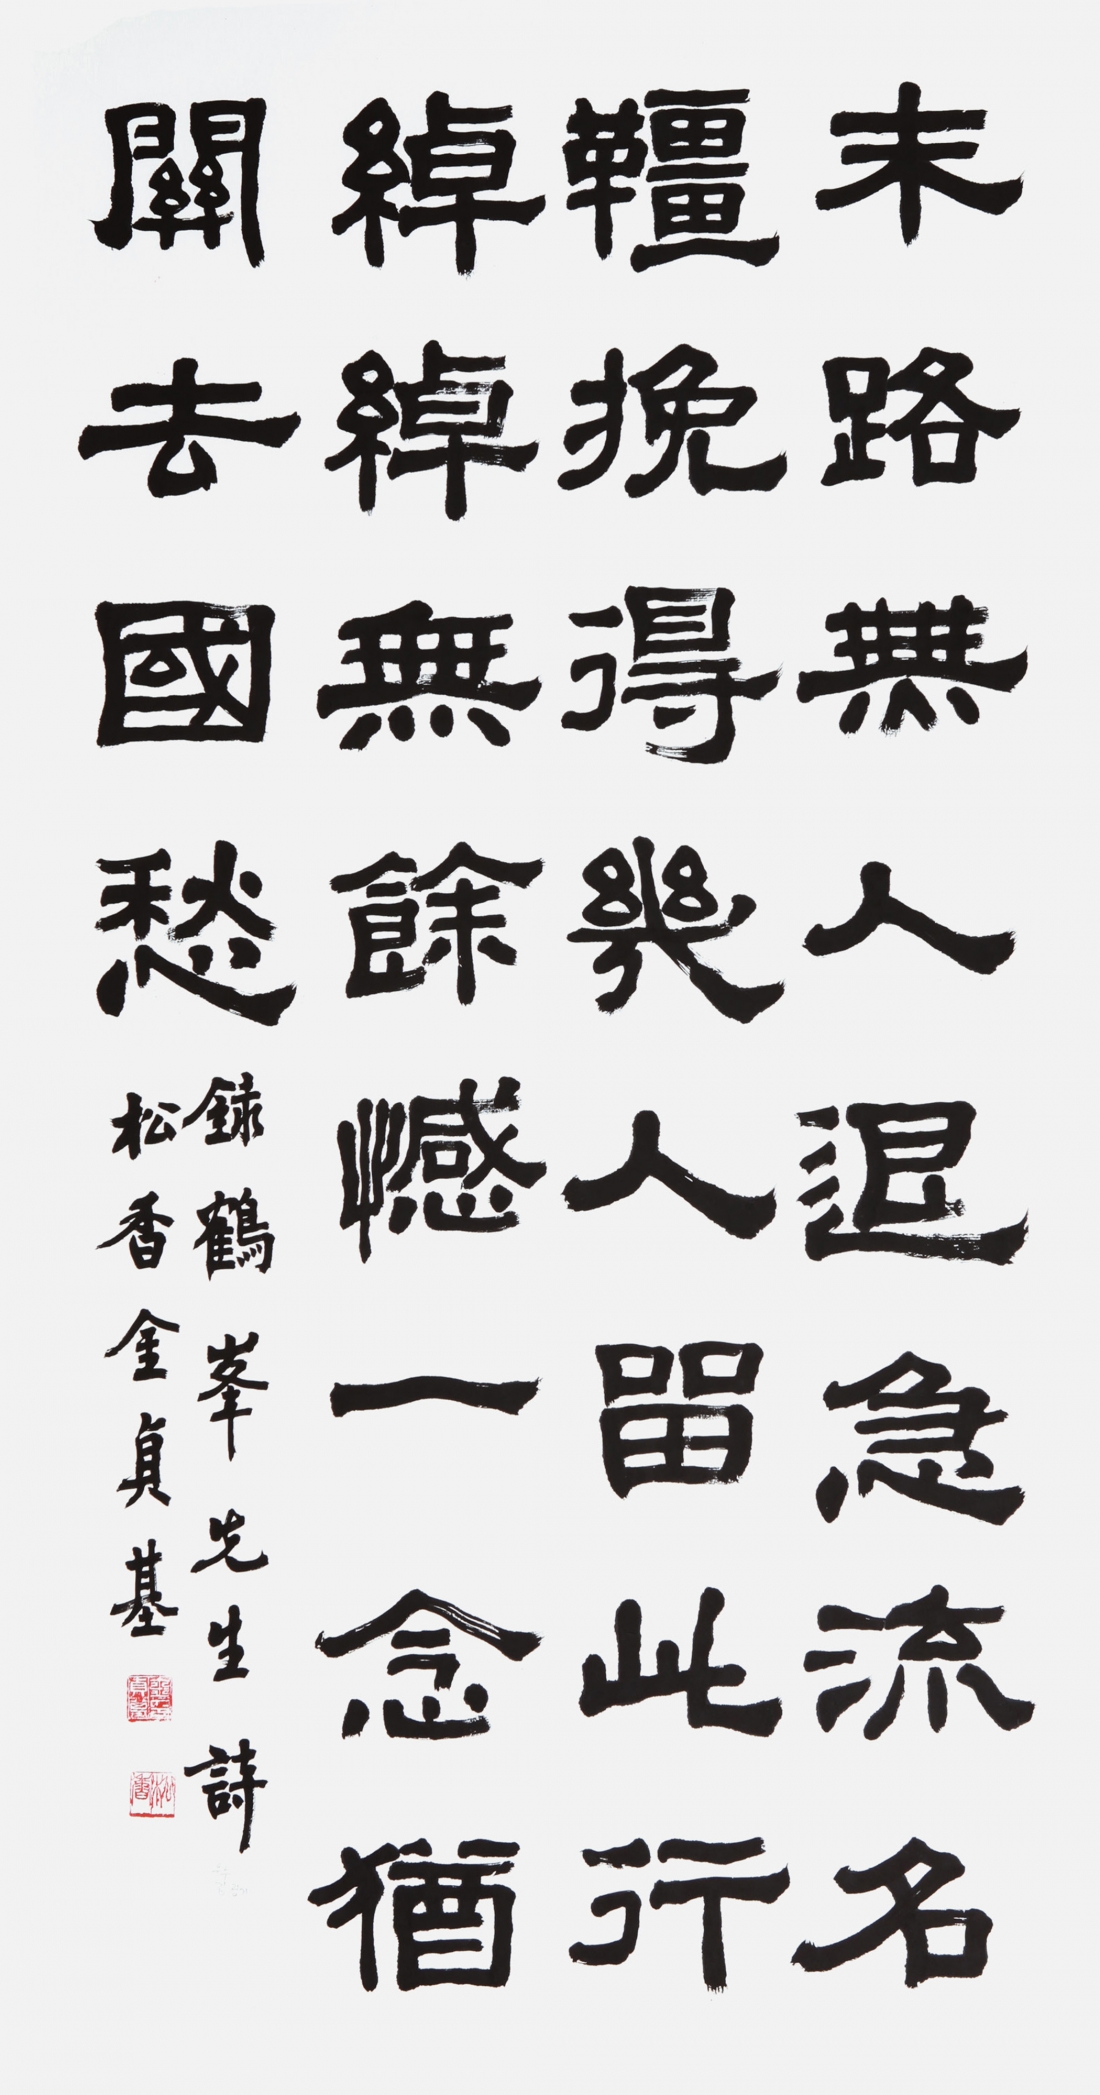 末路無人退急流名
韁挽得幾人留此行
綽綽無餘憾一念猶
關去國愁
錄鶴峯先生詩
松香金貞基